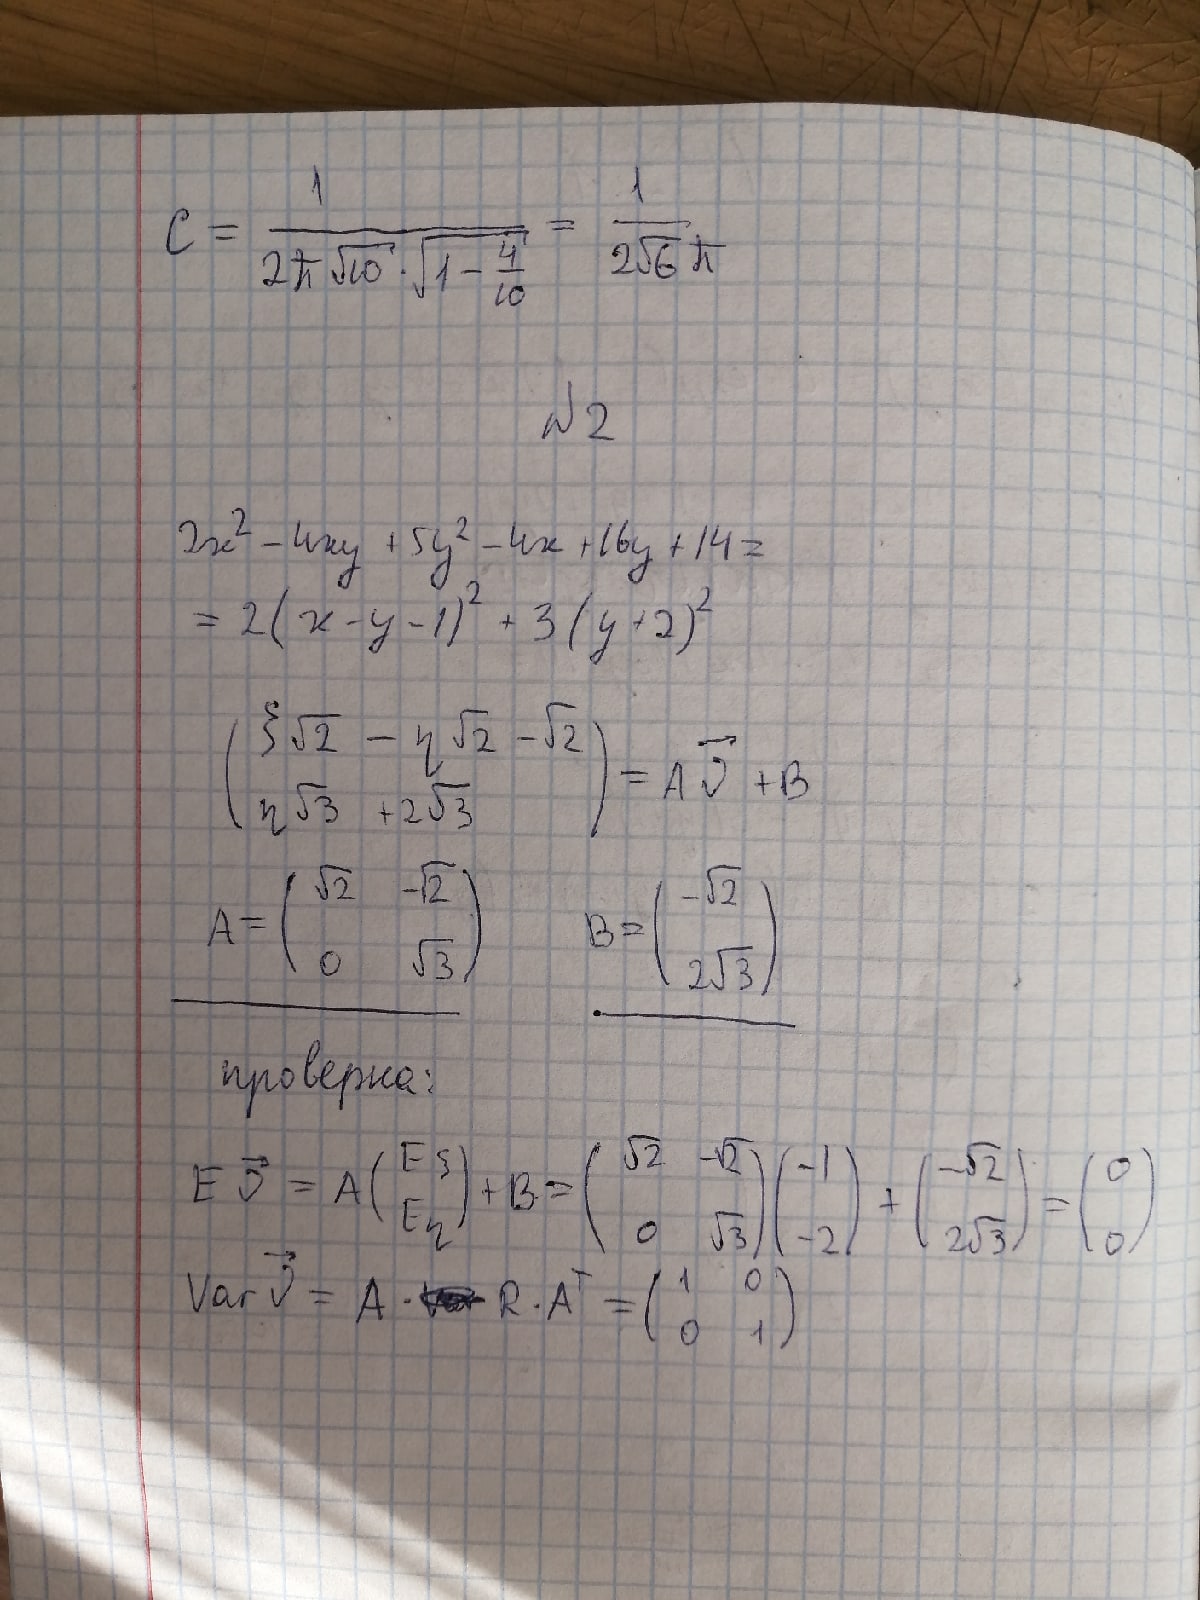 C = 1 / (2π √10 · √(1 - 4/10)) = 1 / (2√6 π)
№2
2x² - 4xy + 5y² - 4x + 16y + 14 =
= 2(x - y - 1)² + 3(y + 2)²
(ξ√2 - η√2 - √2; η√3 + 2√3) = A ν⃗ + B
A = (√2 -√2; 0 √3) B = (-√2; 2√3)
проверка:
E ν⃗ = A (Eξ; Eη) + B = (√2 -√2; 0 √3) (-1; -2) + (-√2; 2√3) = (0; 0)
Var ν⃗ = A · R · Aᵀ = (1 0; 0 1)